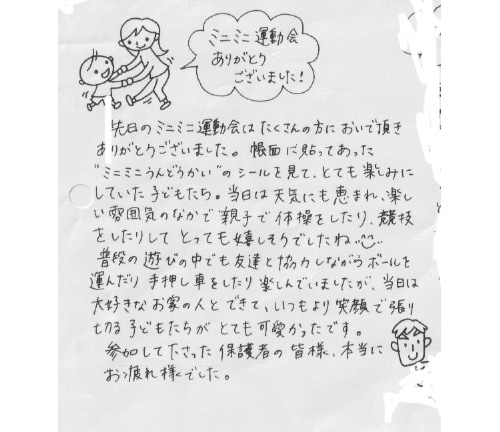 ミニミニ運動会
ありがとう
ございました!
先日のミニミニ運動会はたくさんの方においで頂き
ありがとうございました。帳面に貼ってあった
"ミニミニうんどうかい"のシールを見て、とても楽しみに
していた子どもたち。当日は天気にも恵まれ、楽し
い雰囲気のなかで親子で体操をしたり、競技
をしたりしてとっても嬉しそうでしたね
普段の遊びの中でも友達と協力しながらボールを
運んだり手押し車をしたり楽しんでいましたが、当日は
大好きなお家の人とできて、いつもより笑顔で張り
切る子どもたちがとても可愛かったです。
参加して下さった保護者の皆様、本当に
お疲れ様でした。